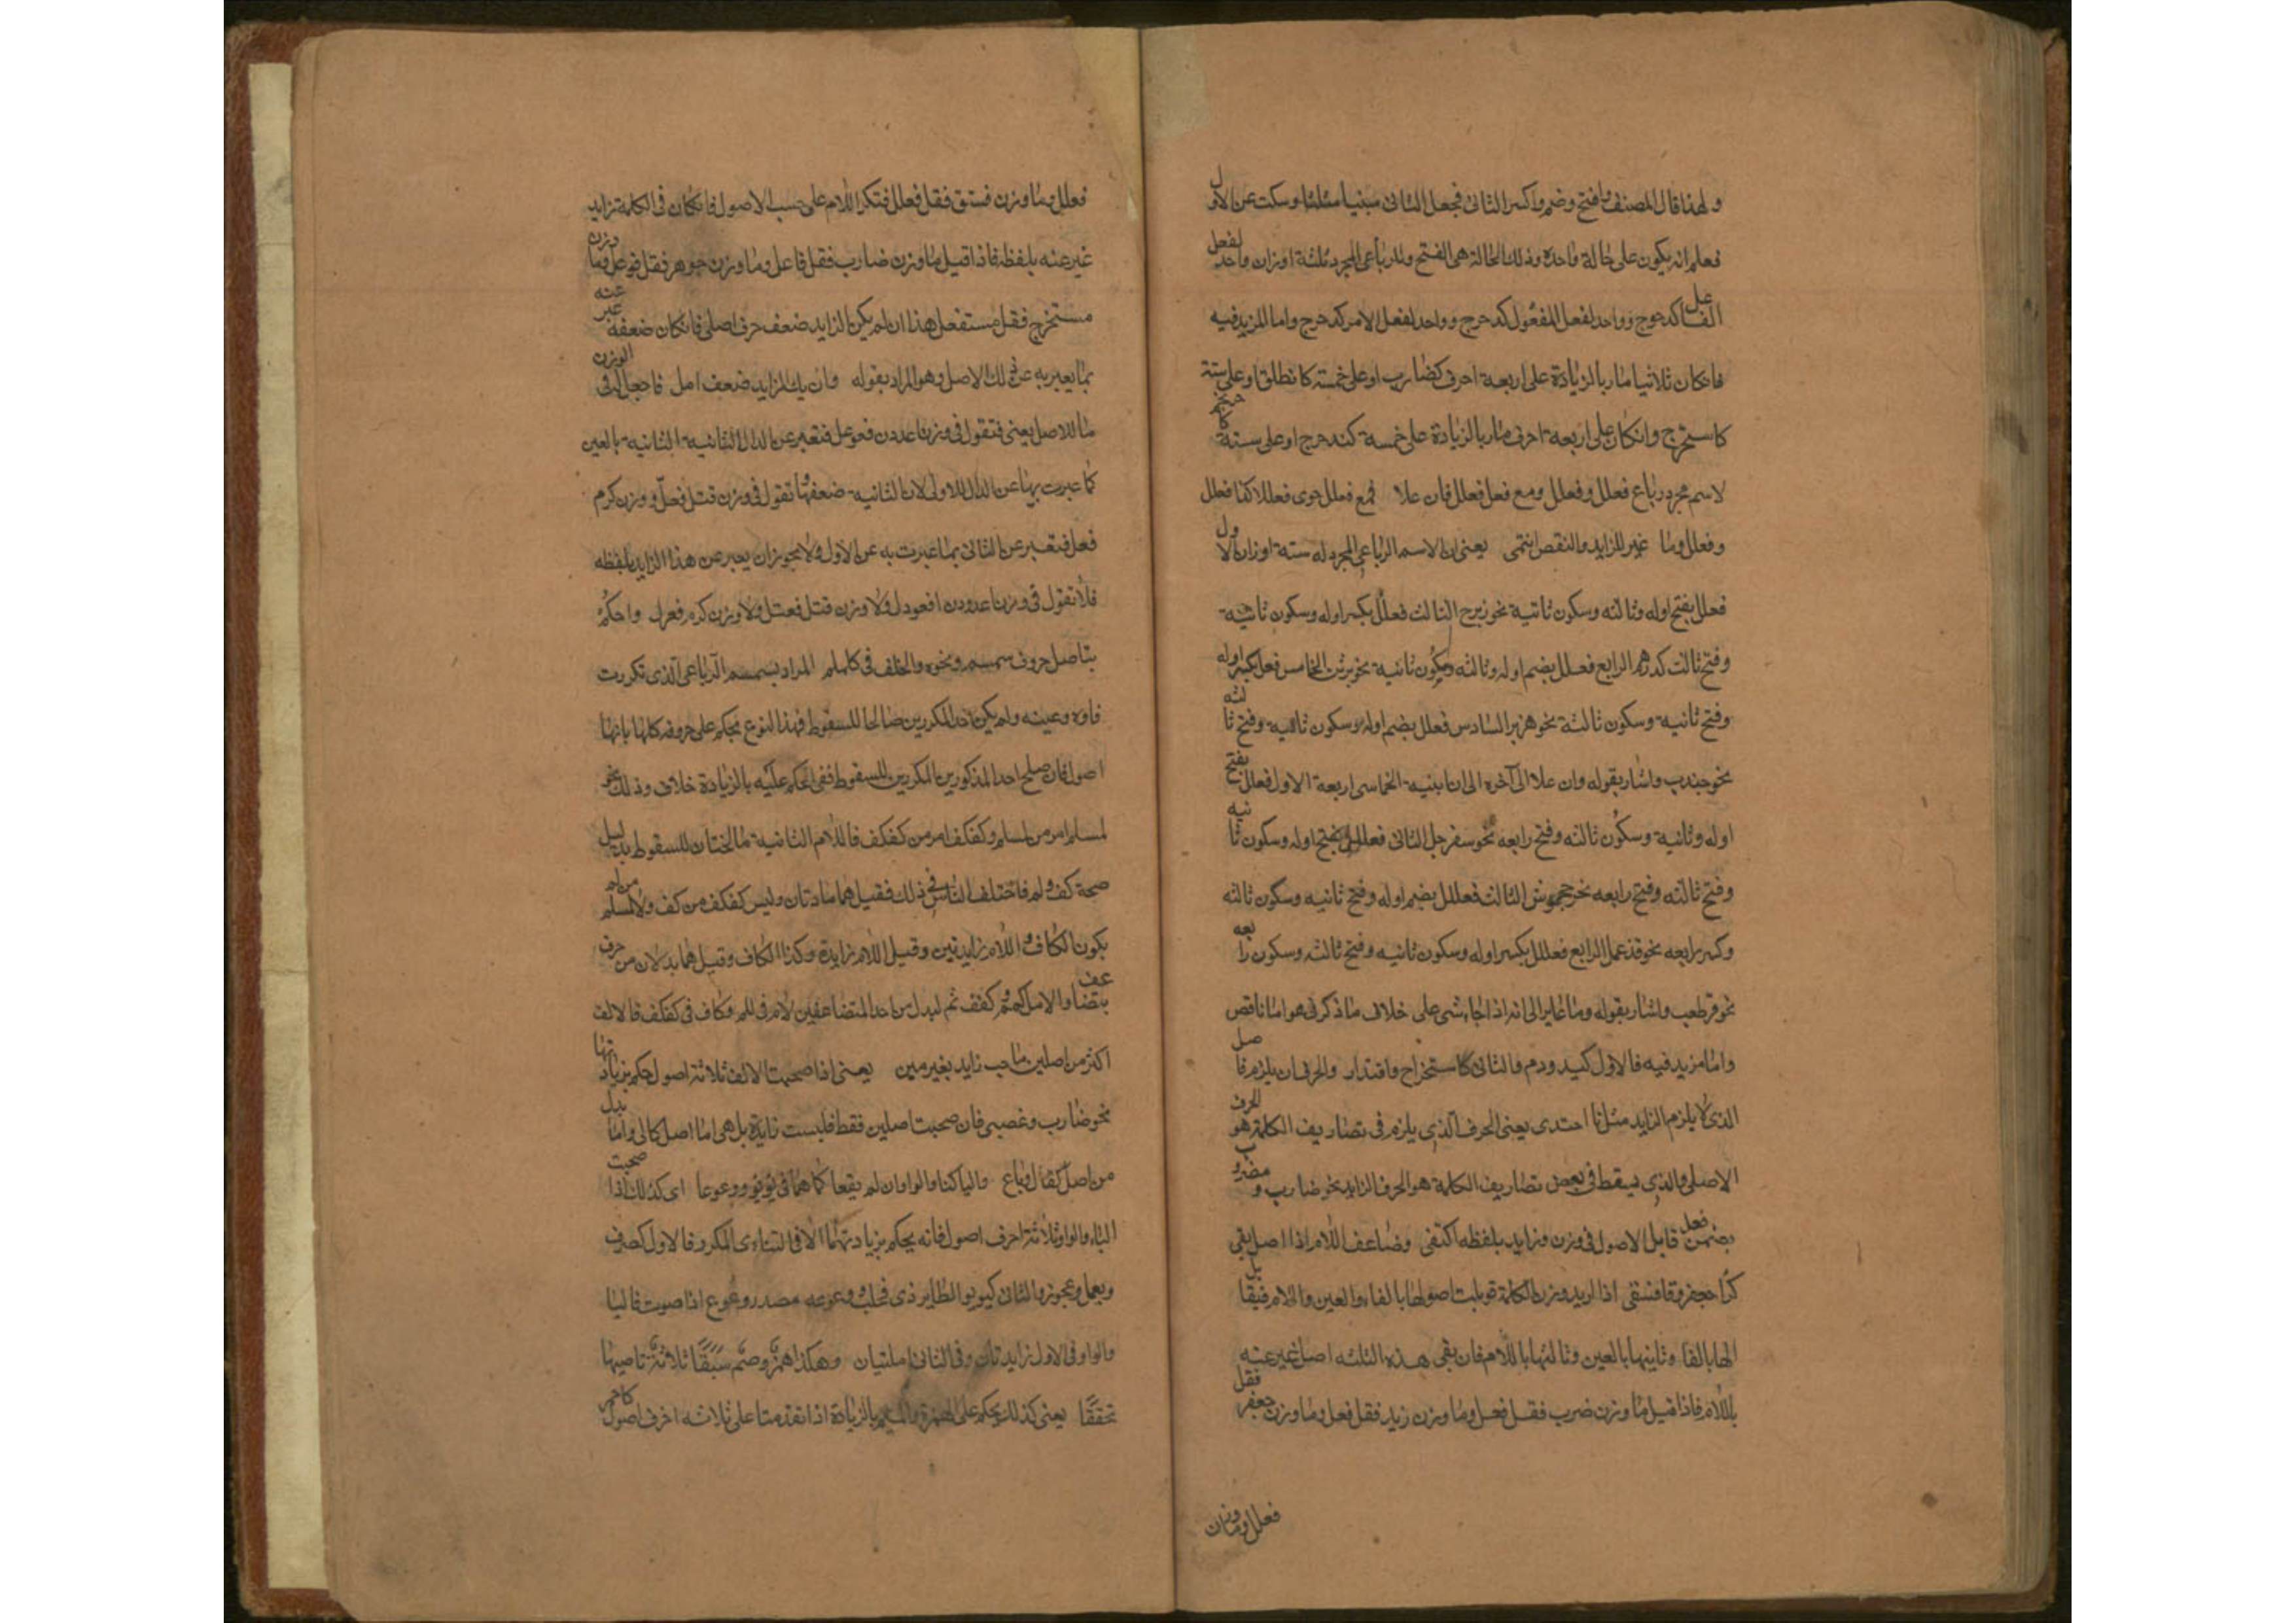 ولهذا قال المصنف وافتح وضم واكسر الثانى فجعل الثانى مبنيا مثلثا وسكت عن الاول
فعلم انه يكون على حالة واحدة وذلك الحالة هى الفتح وللرباعى المجرد ثلثة اوزان واحد لفعل
الفاعل كدحرج وواحد لفعل المفعول كدحرج وواحد لفعل الامر كدحرج واما المزيد فيه
فانكان ثلاثيا صار بالزيادة على اربعة احرف كضارب او على خمسة كانطلق او على ستة
كاستخرج وانكان على اربعة احرف صار بالزيادة على خمسة كتدحرج او على ستة كاحرنجم
لاسم مجرد رباع فعلل وفعلل ومع فعل فعلل فان علا فمع فعلل حوى فعلللا كذا فعلل
وفعلل وما غير للزايد والنقص انتمى يعنى ان الاسم الرباعى المجرد له ستة اوزان الاول
فعلل بفتح اوله وثالثه وسكون ثانية نحو زبرج الثالث فعلل بكسر اوله وسكون ثانية
وفتح ثالث كدرهم الرابع فعلل بضم اوله وثالثه وسكون ثانية نحو برثن الخامس فعل بكسر اوله
وفتح ثانية وسكون ثالثة نحو هزبر السادس فعلل بضم اوله وسكون ثانية وفتح ثالثه
نحو جندب واشار بقوله وان علا الى آخره الى ان ابنية الخماسى اربعة الاول فعلل بفتح
اوله وثانية وسكون ثالثه وفتح رابعه نحو سفرجل الثانى فعللل بفتح اوله وسكون ثانيه
وفتح ثالثه وفتح رابعه نحو جحمرش الثالث فعللل بضم اوله وفتح ثانيه وسكون ثالثه
وكسر رابعه نحو قذعمل الرابع فعللل بكسر اوله وسكون ثانيه وفتح ثالثه وسكون رابعه
نحو قرطعب واشار بقوله وما غاير الى انه اذا جاء شى على خلاف ما ذكر فهو اما ناقص
واما مزيد فيه فالاول كيد ودم والثانى كاستخراج واقتدار والحرف ان يلزم فاصل
الذى لا يلزم الزايد مثل تا احتذى يعنى الحرف الذى يلزم فى تصاريف الكلمة هو الحرف
الاصلى والذى يسقط فى بعض تصاريف الكلمة هو الحرف الزايد نحو ضارب ومضروب
بضمن فعل قابل الاصول فى وزن وزايد بلفظه اكتفى وضاعف اللام اذا اصل بقى
كرا جعفر وقاف فستق اذا اريد وزن الكلمة قوبلت اصولها بالفاء والعين واللام فيقابل
الها بالفا وثانيها بالعين وثالثها باللام فان بقى هذه الثلثه اصل غير عنه
باللام فاذا قيل ما وزن ضرب فقل فعل وما وزن زيد فقل فعل وما وزن جعفر فقل
فعلل وما وزن
فعلل وما وزن فستق فقل فعلل فتكرر اللام على حسب الاصول فانكان فى الكلمة زايد
غير عنه بلفظه فاذا قيل ما وزن ضارب فقل فاعل وما وزن جوهر فقل فوعل وما وزن
مستخرج فقل مستفعل هذا ان لم يكن الزايد ضعف حرف اصلى فانكان ضعفه عبر عنه
بما يعبر به عن ذلك الاصل وهو المراد بقوله وان يك الزايد ضعف اصل فاجعل له فى الوزن
ما للاصل يعنى فتقول فى وزن اغدودن افعوعل فتعبر عن الدال الثانية الثانيه بالعين
كما عبرت بها عن الدال الاولى لان الثانية ضعفها وتقول فى وزن قتل فعل ووزن كرم
فعل فتعبر عن الثانى بما عبرت به عن الاول ولا يجوز ان يعبر عن هذا الزايد بلفظه
فلا تقول فى وزن اغدودن افعودل ولا وزن قتل فعتل ولا وزن كرم فعرل واحكم
بتاصل حروف سمسم ونحوه والخلف فى كلملم المراد بسمسم الرباعى الذى تكررت
فاؤه وعينه ولم يكن احد المكررين صالحا للسقوط فهذا النوع يحكم على حروفه كلها بانها
اصول فان صلح احد المذكورين المكررين للسقوط ففى الحكم عليه بالزيادة خلاف وذلك نحو
لملم امر من لملم وكفكف امر من كفكف فاللام الثانية صالحتان للسقوط بدليل
صحة كف ولم فاختلف الناس فى ذلك فقيل هما مادتان وليس كفكف من كف ولا لملم من لم
بكون الكاف واللام زايدتين وقيل اللام زايدة وكذا الكاف وقيل هما بدلان من حرف
بتضاعف والاصل لمم وكفف ثم ابدل من احد المتضاعفين لام فى لملم وكاف فى كفكف فالالف
اكثر من اصلين صاحب زايد بغير مين يعنى اذا صحبت الالف ثلاثة اصول حكم بزيادتها
نحو ضارب وغضبى فان صحبت اصلين فقط فليست زايدة بل هى اما اصل كالى واما بدل
من اصل كقال وباع واليا كذا والواو ان لم يقعا كما هما فى يؤيؤ ووعوعا اى كذلك اذا صحبت
الياء والواو ثلاثة احرف اصول فانه يحكم بزيادتهما الا فى الثناءى المكرر فالاول كصيرف
ويعمل وعجوز والثانى كيويو الطاير ذى مخلب ووعوعه مصدر وعوع اذا صوت فاليا
والواو فى الاول زايدتان وفى الثانى اصليتان وهكذا همز وميم سبقا ثلاثة تاصيلها
تحققا يعنى كذلك يحكم على الهمزة والميم بالزيادة اذا تقدمتا على ثلاثه احرف اصول كاحمر